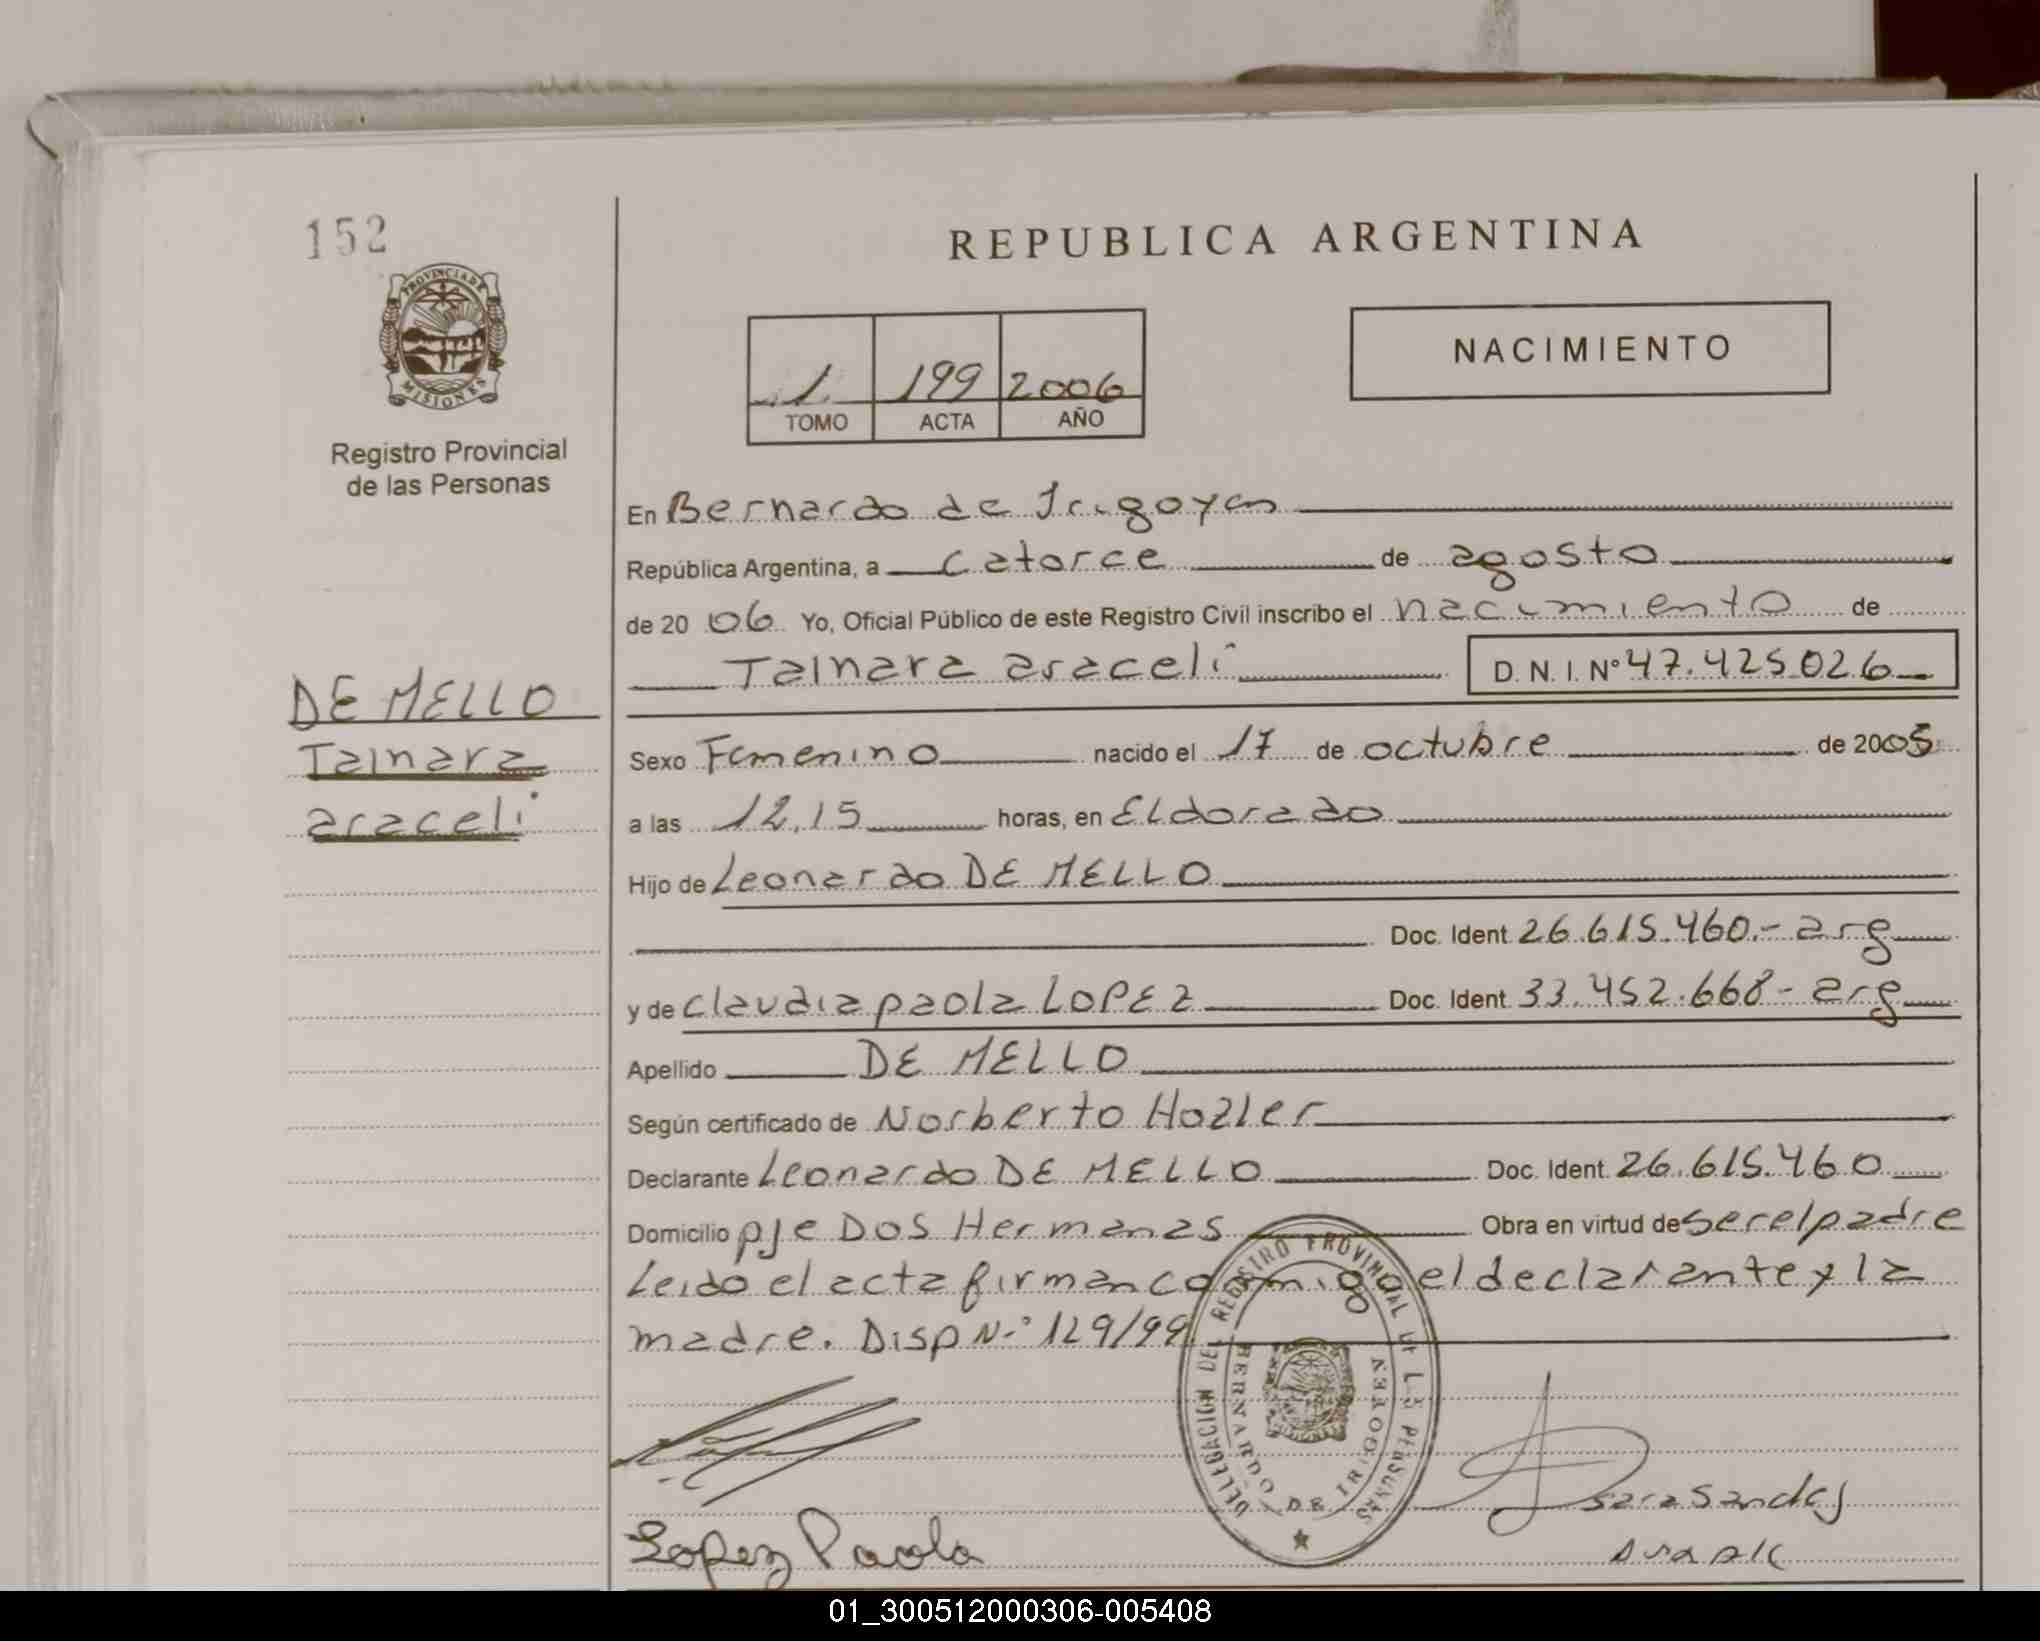 152
PROVINCIA DE
MISIONES
Registro Provincial
de las Personas
DE MELLO
Tainara
araceli
REPUBLICA ARGENTINA
1 199 2006
TOMO ACTA AÑO
NACIMIENTO
En Bernardo de Irigoyen
República Argentina, a catorce de agosto
de 20 06 Yo, Oficial Público de este Registro Civil inscribo el nacimiento de
Tainara araceli D.N.I. Nº 47.425.026
Sexo Femenino nacido el 17 de octubre de 2005
a las 12,15 horas, en Eldorado
Hijo de Leonardo DE MELLO
Doc. Ident 26.615.460.- arg
y de claudia paola LOPEZ Doc. Ident 33.452.668- arg
Apellido DE MELLO
Según certificado de Norberto Hozler
Declarante Leonardo DE MELLO Doc. Ident. 26.615.460
Domicilio pje DOS Hermanas Obra en virtud de ser el padre
Leido el acta firman conmigo el declarante y la
madre. Disp N-º 129/99
DELEGACION DEL REGISTRO PROVINCIAL DE LAS PERSONAS
BERNARDO DE IRIGOYEN
Lopez Paola
01_300512000306-005408